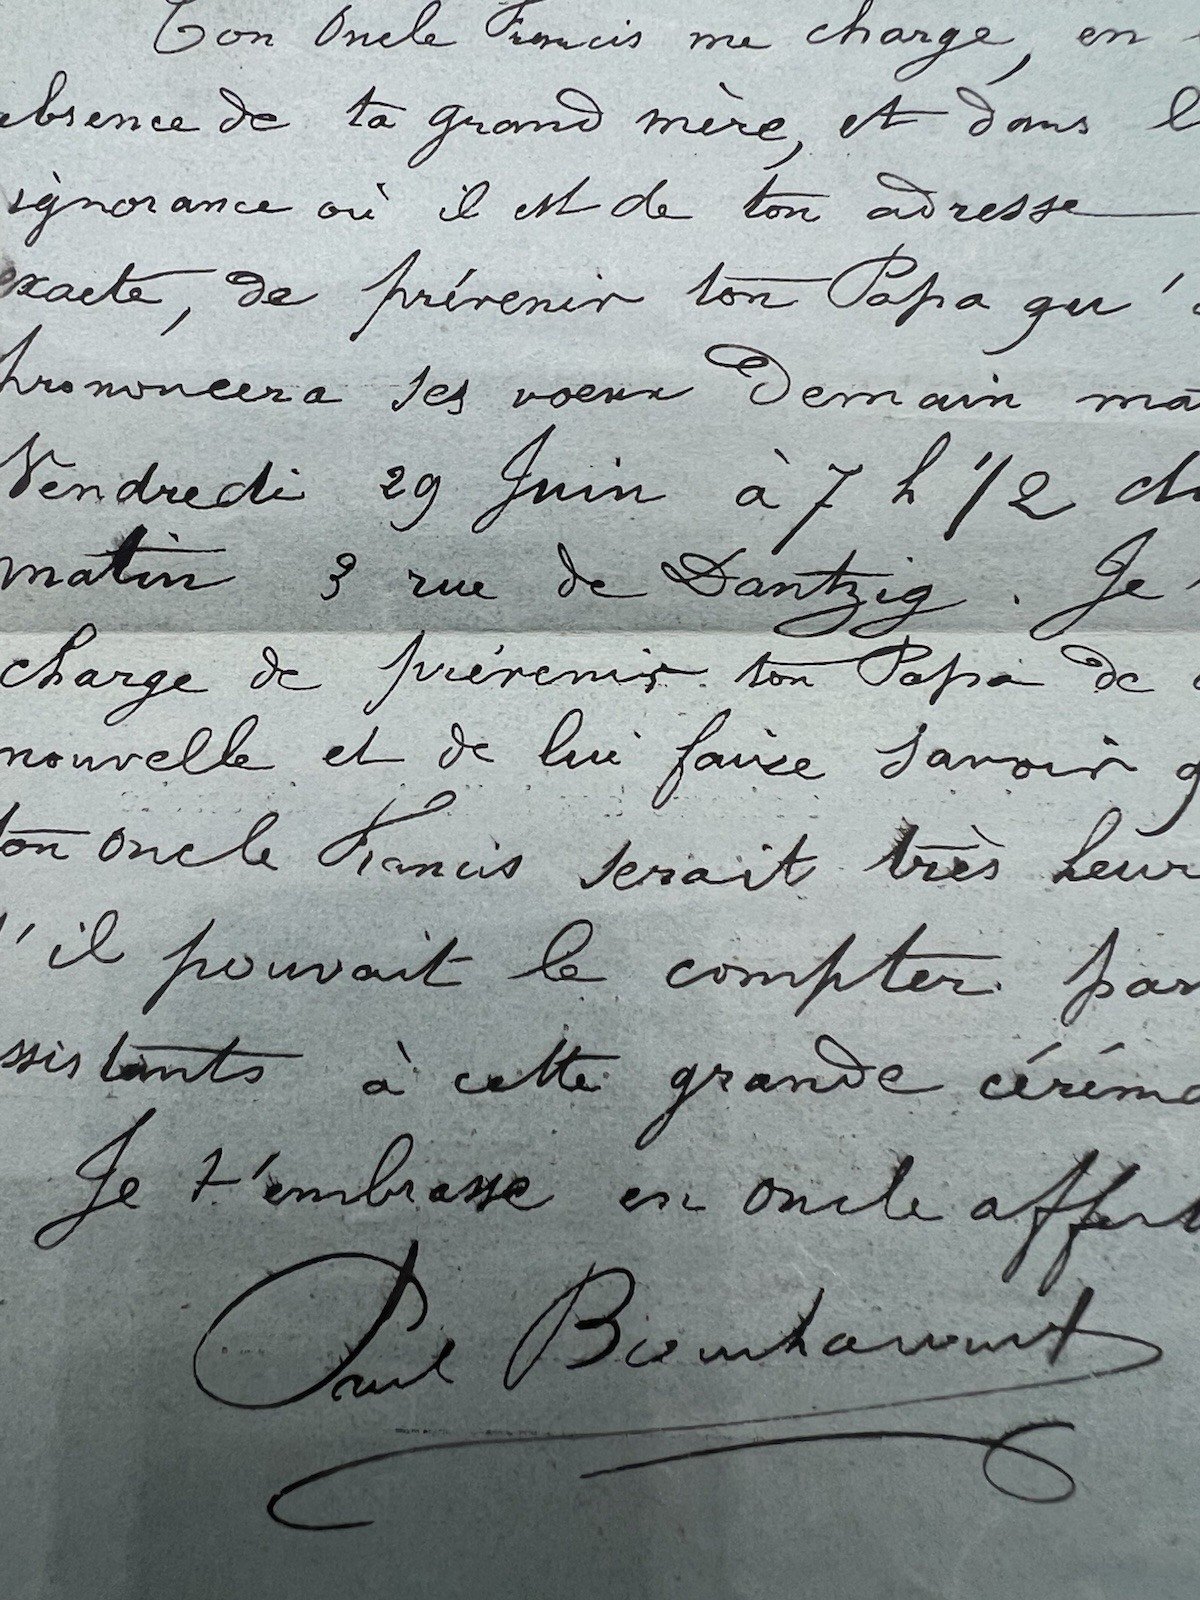 Ton Oncle Francis me charge, en
absence de ta grand mère, et dans l
ignorance où il est de ton adresse
exacte, de prévenir ton Papa qu'
prononcera ses voeux Demain mat
Vendredi 29 Juin à 7 h 1/2 du
matin 3 rue de Dantzig. Je
charge de prévenir ton Papa de
nouvelle et de lui faire savoir q
ton Oncle Francis serait très heur
s'il pouvait le compter par
ssistants à cette grande cérémo
Je t'embrasse en oncle affect
Paul